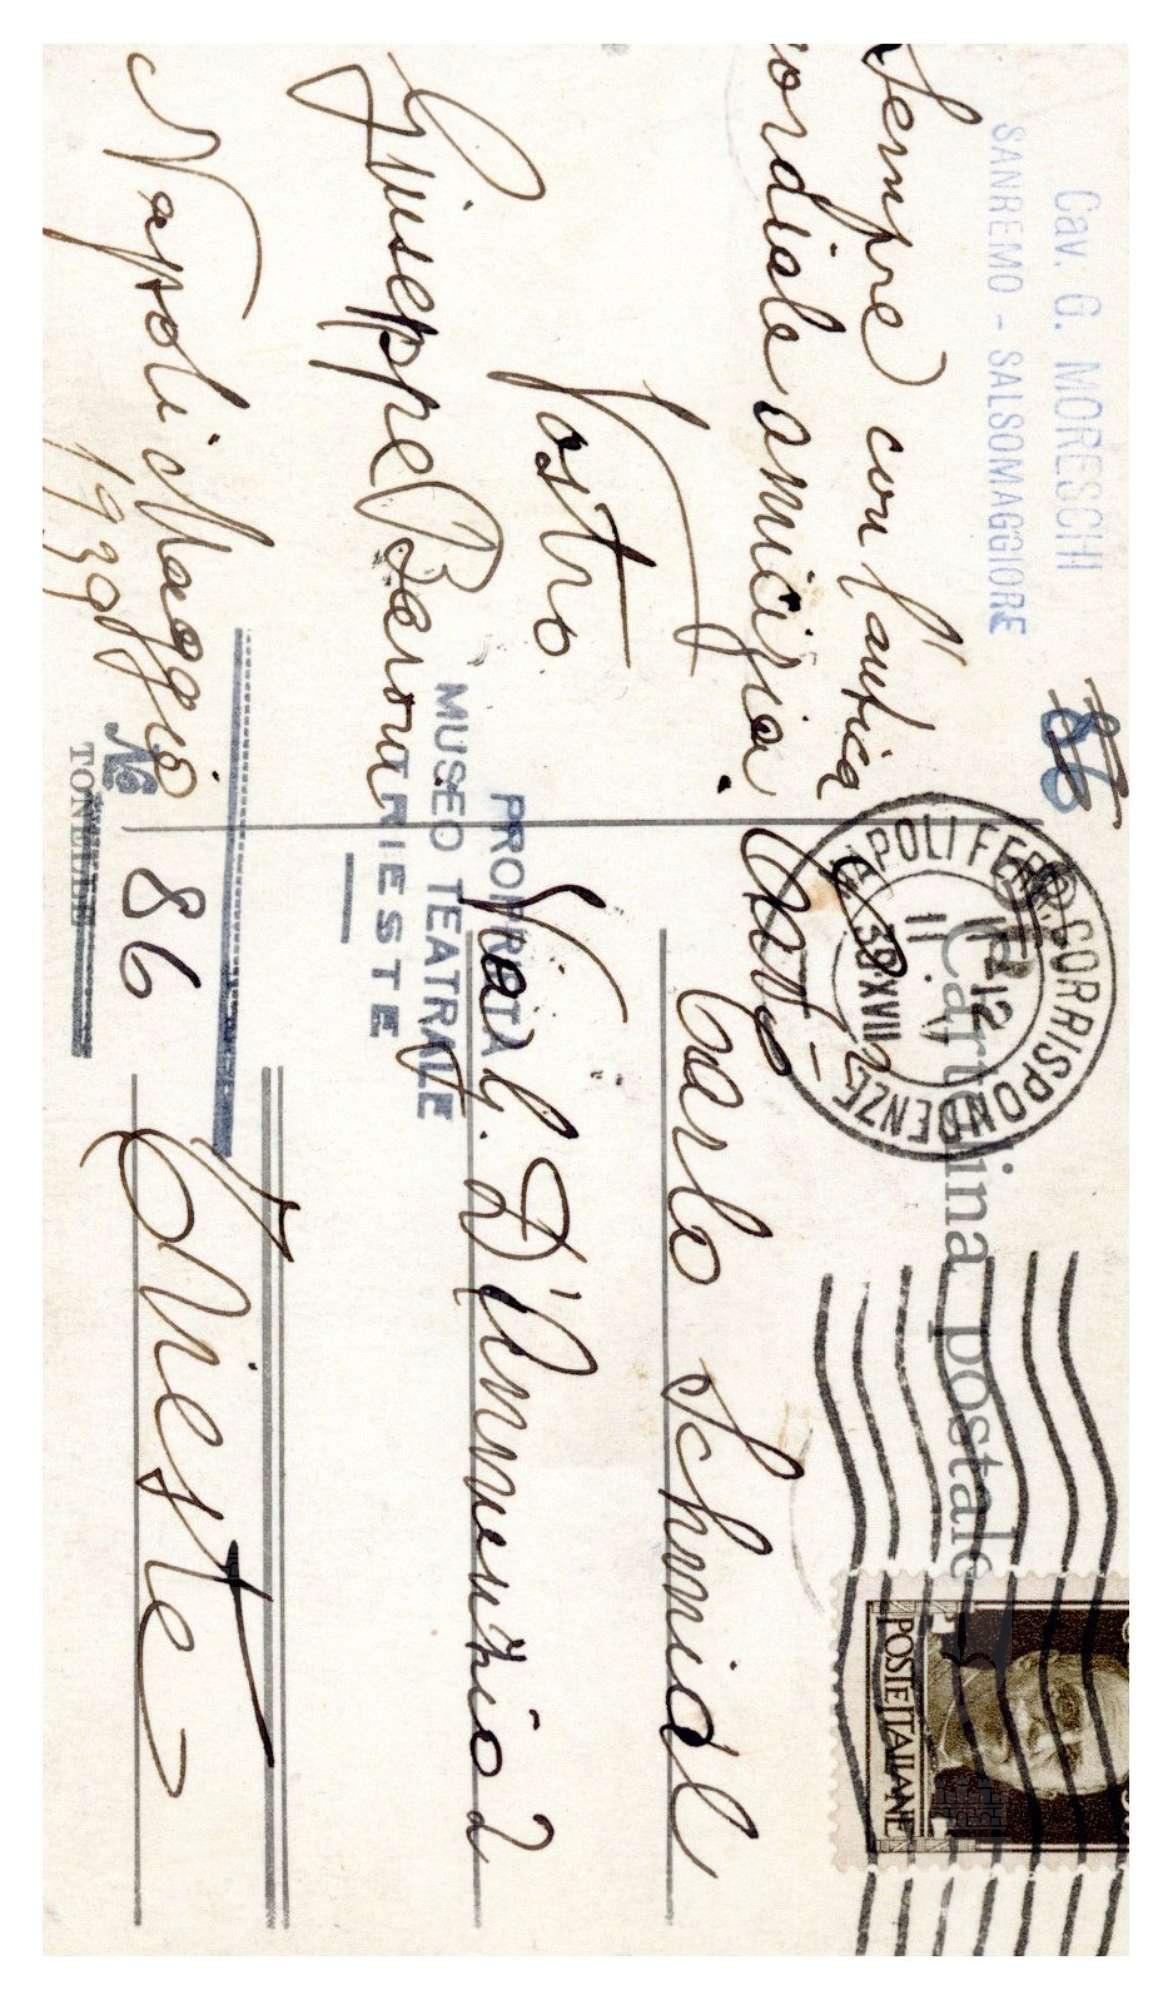 Cav. G. MORESCHI
SANREMO - SALSOMAGGIORE
86
Sempre con l'antica
cordiale amicizia.
Vostro
Giuseppe
Napoli Maggio
1939
Cartolina postale
NAPOLI FERR. CORRISPONDENZE
11-12
11. V
39 XVII
POSTE ITALIANE
Carlo Schmidl
Via G. D'Annunzio 2
Trieste
PROPRIETÀ
MUSEO TEATRALE
TRIESTE
No 86